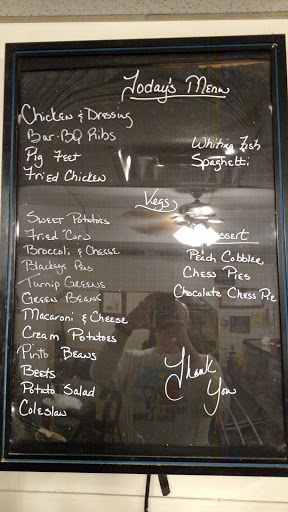 Today's Menu
Chicken & Dressing
Bar-BQ Ribs
Pig Feet
Fried Chicken
Whiting Fish
Spaghetti
Vegs
Sweet Potatoes
Fried Corn
Broccoli & Cheese
Blackeye Peas
Turnip Greens
Green Beans
Macaroni & Cheese
Cream Potatoes
Pinto Beans
Beets
Potato Salad
Coleslaw
Dessert
Peach Cobbler
Chess Pies
Chocolate Chess Pie
Thank
You